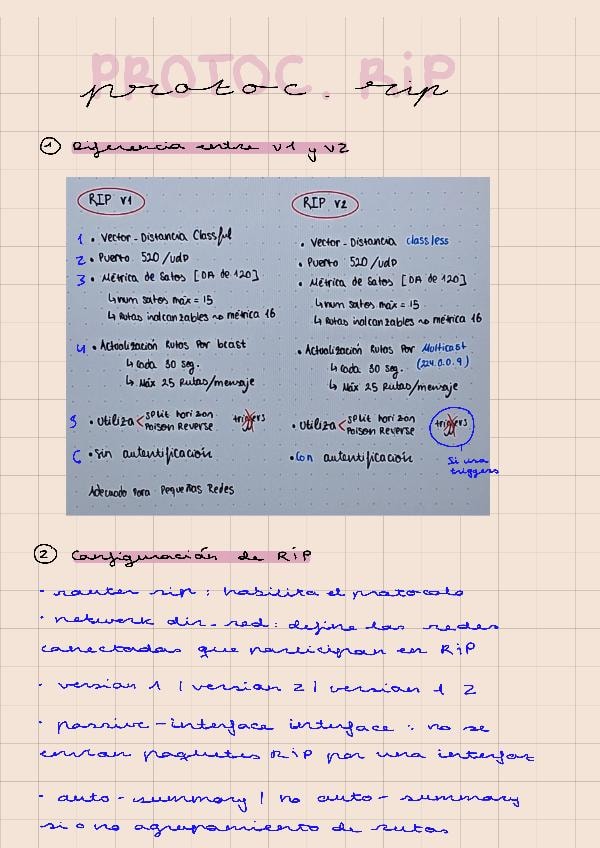 PROTOC. RiP
protoc. rip
① Diferencia entre v1 y v2
RIP v1
1 • Vector-Distancia Classful
2 • Puerto 520/udp
3 • Métrica de Saltos [DA de 120]
↳ num saltos máx = 15
↳ Rutas inalcanzables ~> métrica 16
4 • Actualización Rutas Por bcast
↳ Cada 30 seg.
↳ Máx 25 Rutas/mensaje
5 • Utiliza < split horizon
Poison Reverse
triggers
6 • Sin autentificación
Adecuado Para Pequeñas Redes
RIP v2
• Vector-Distancia classless
• Puerto 520/udp
• Métrica de Saltos [DA de 120]
↳ num saltos máx = 15
↳ Rutas inalcanzables ~> métrica 16
• Actualización Rutas Por Multicast
(224.0.0.9)
↳ Cada 30 seg.
↳ Máx 25 Rutas/mensaje
• Utiliza < split horizon
Poison Reverse
triggers
Si usa
triggers
• Con autentificación
② Configuración de RIP
- router rip : habilita el protocolo
- network dir-red : define las redes
conectadas que participan en RiP
- version 1 | version 2 | version 1 2
- passive-interface interface : no se
envían paquetes RiP por una interfaz
- auto-summary | no auto-summary
si o no agrupamiento de rutas